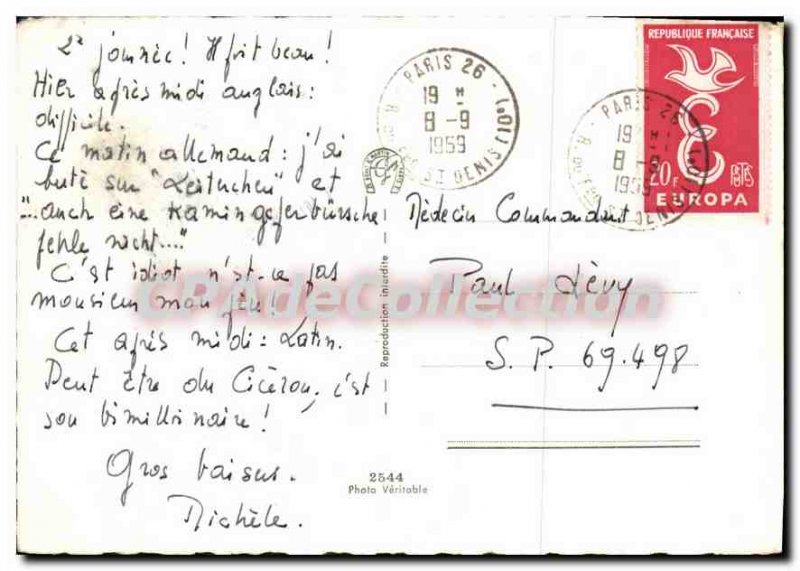 2e journée! Il fait beau!
Hier après midi anglais:
difficile.
Ce matin allemand: j'ai
buté sur "Leituchen" et
"...auch eine Kamingeferbürsche
fehle nicht...."
C'est idiot n'est-ce pas
monsieur mon père!
Cet après midi: Latin.
Peut être du Cicéron, c'est
son bimillinaire!
Gros baisers.
Michèle.
2544
Photo Véritable
Reproduction interdite
PARIS 26
19 H
8-9
1959
R. DU FG ST DENIS (10e)
RÉPUBLIQUE FRANÇAISE
20F
POSTES
EUROPA
PARIS 26
19 H
8-9
1959
Médecin Commandant
Paul Lévy
S.P. 69.498
CPAdeCollection